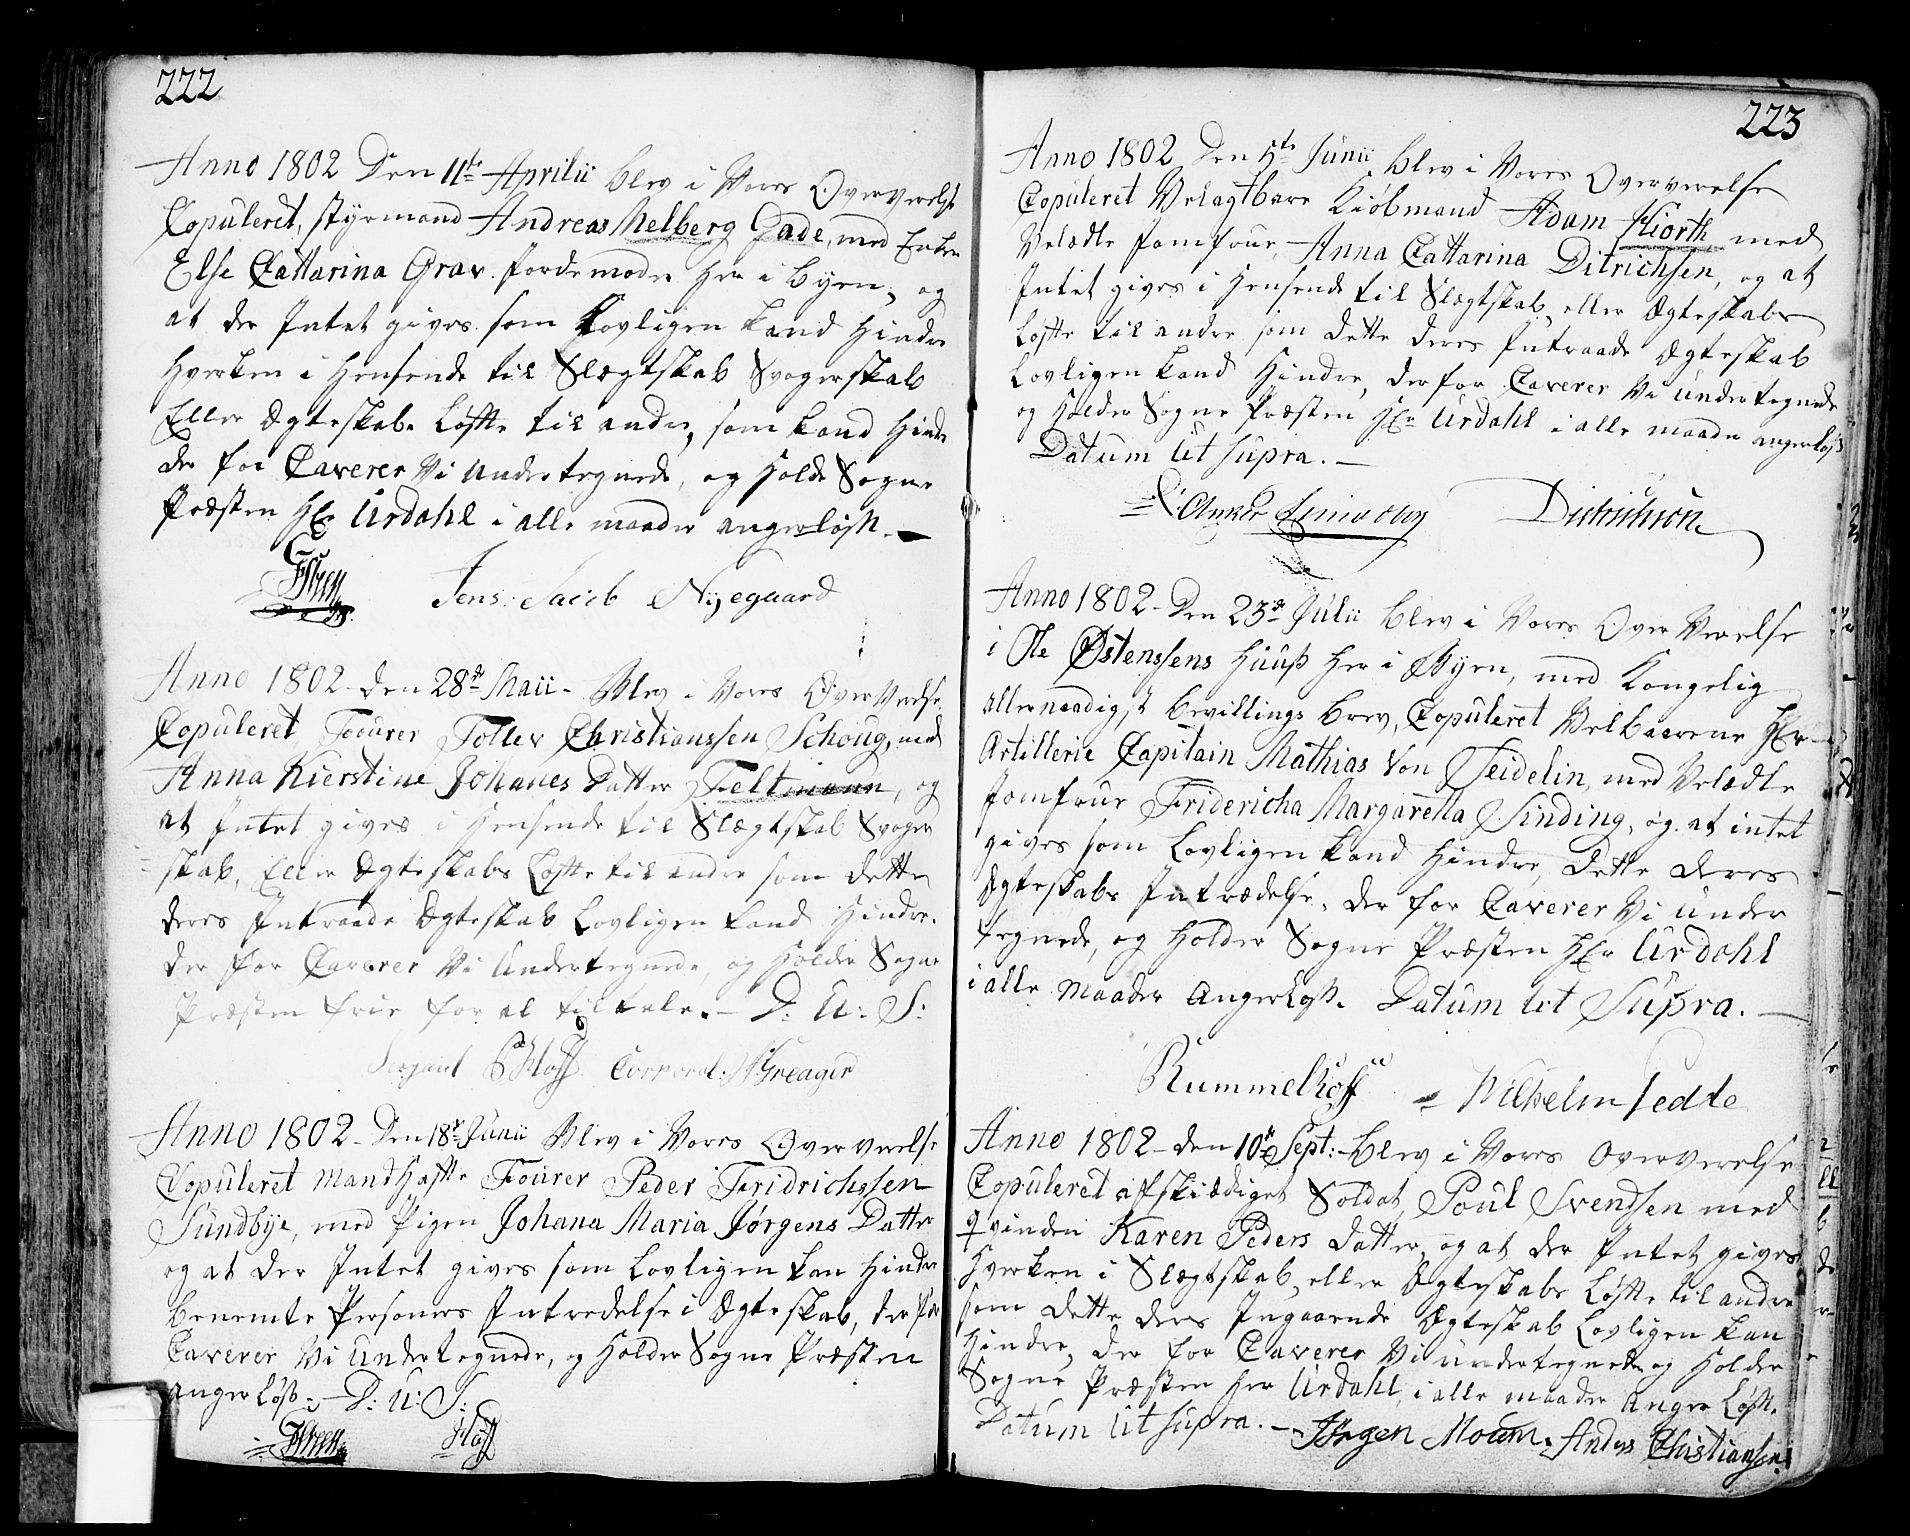 222
Anno 1802 Den 11te Aprilii blev i Vores Oververelse
Copuleret, styrmand Andreas Melberg Gade, med Enken
Else Cattarina Grav. fordemoder her i byen, og
at der Intet gives som Lovligen kand Hindre
Hverken i Hensende til Slægtskab Svogerskab
Eller Ægteskabs Løfte til andre, som kand Hindre
der for Caverer Vi undertegnede, og Holde Sogne
Præsten Hr Urdahl i alle maader angerløsh.
Jens Jacob Nyegaard
Anno 1802 - den 28de Maii - Blev i Vores Over Verelse
Copuleret Fourer Tollev Christianssen Schoug, med
Anna Kierstine Johanes Datter Feltmann, og
at Intet gives i Hensende til Slægtskab Svoger
skab, Eller Ægteskabs Løfte til andre som dette
deres Intraade Ægteskab Lovligen kand Hindre.
der for Caverer Vi Undertegnede, og Holder Sogne
Præsten frie for al tiltale. - D: U: S:
Sergant Hoff Corporal: Greager
Anno 1802 - Den 18de Junii Blev i Vores Oververelse
Copuleret Mandhafte Fourer Peder Fridrichssen
Sundbye, med Pigen Johana Maria Jørgens Datter
og at der Intet gives som Lovligen kan Hindre
benemte Personers Intredelse i Ægteskab, der for
Caverer Vi undertegnede, og Holder Sogne Præsten
angerløsh. - D: U: S:
Hoff
223
Anno 1802 Den 5te Junii blev i Vores Oververelse
Copuleret Velagtbare Kiøbmand Adam Hiorth med
Velædle Jomfrue, Anna Cattarina Ditrichsen, og at
Intet gives i Hensende til Slægtskab, eller Ægteskabs
Løfte til andre som dette deres Intraade Ægteskab
Lovligen kand Hindre, derfor Caverer Vi undertegnede
og Holder Sogne Præsten Hr Urdahl i alle maader angerløsh
Datum ut supra. -
Ditrichson
Anno 1802 - Den 23de Julii blev i Vores Over Verelse
i Ole Østenssens Huuß her i Byen, med Kongelig
allernaadigst bevillings brev, Copuleret Velbaarene Hr
Artillerie Capitain Mathias Von Seidelin, med Velædle
Jomfrue Fridericha Margaretta Sinding, og at intet
gives som Lovligen kand Hindre, Dette deres
Ægteskabs Intrædelse, der for Caverer Vi under
tegnede, og Holder Sogne Præsten Hr Urdahl
i alle Maader Angerløsh. Datum ut Supra. -
Rummelhoff Wilhelm Tedte
Anno 1802 - den 10de Sept: - blev i Vores Oververelse
Copuleret afskiediget Soldat Poul Svendsen med
qvinden Karen Peders datter, og at der Intet gives
Hverken i Slægtskab, eller Ægteskabs Løfte til andre
som dette deres Ingaaende Ægteskab Lovligen kan
Hindre, der for Caverer Vi undertegnede og Holder
Sogne Præsten Her Urdahl, i alle maader Anger Løsh.
Datum ut supra. - Jørgen Moum. Anders Christiansen